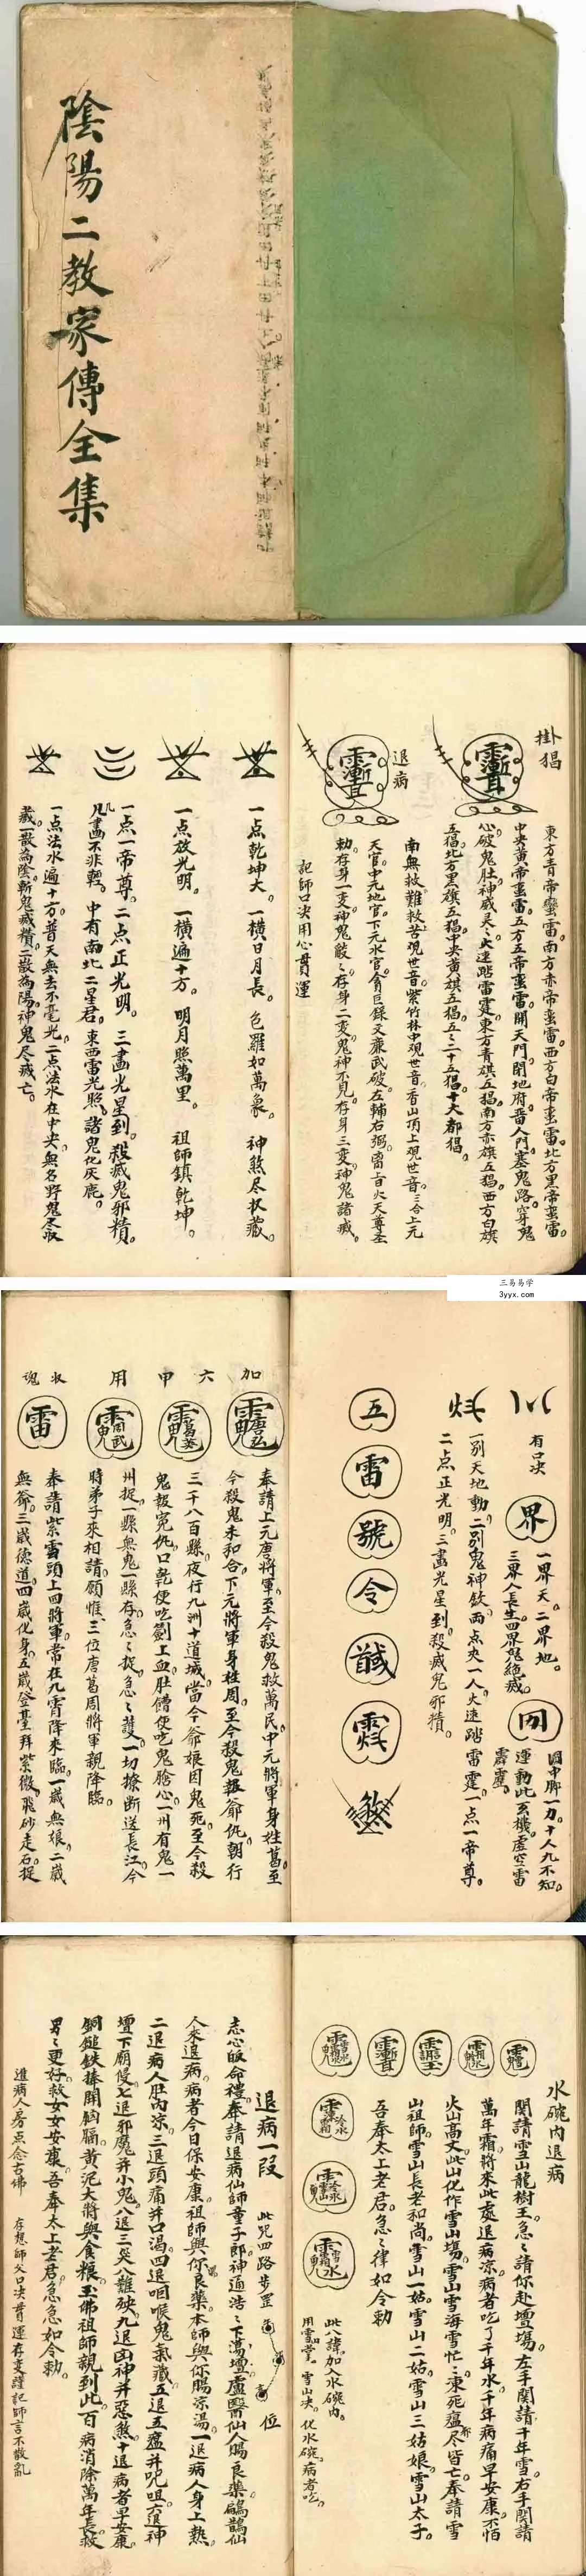 陰陽二教家傳全集
掛猖
東方青帝蠻雷南方赤帝蛮雷西方白帝蛮雷北方黑帝蛮雷
中央黄帝蛮雷五方五帝蛮雷開天門閉地府畨人門塞鬼路穿鬼
心破鬼肚神威灵々火速踏雷霆東方青旗五猖南方赤旗五猖西方白旗
五猖北方黑旗五猖中央黄旗五猖五々二十五猖十大都猖
退病
南無救難救苦观世音紫竹林中观世音香山頂上观世音三合上元
天官中元地官下元水官貪巨録文廉武破左輔右弼
勅存身一变神鬼散々存身二变鬼神不見存身三变神鬼諸滅
記師口决用心貫運
一点乾坤大 一横日月長 包羅如萬象 神煞尽收藏
一点放光明 一横遍十方 明月照萬里 祖師鎮乾坤
一点一帝尊 二点正光明 三畫光星到 殺滅鬼邪精
凡畫不非輕 中有南北二星君 東西雷光照 諸鬼化灰尘
一点法水遍十方 普天無去不毫光 二点法水在中央 無名野鬼尽收
藏 一散為陰 斬鬼滅精 二散為陽 神鬼尽滅亡
三易易学
3yyx.com
有口决
界
一界天 二界地
三界人長生 四界鬼絶滅
一别天地動 二别鬼神欽 两点夾一人 火速踏雷霆 一点一帝尊
二点正光明 三畫光星到 殺滅鬼邪精
五
雷
號
令
加
六
甲
用
收
魂
奉請上元唐將軍 至今殺鬼救萬民 中元將軍身姓葛 至
今殺鬼未和合 下元將軍身姓周 至今殺鬼報爺仇 朝行
三千八百縣 夜行九洲十道城 當今爺娘因鬼死 至今殺
鬼報冤仇 口乾便吃劍上血 肚餓便吃鬼膽心 一州有鬼一
州捉 一縣無鬼一縣存 急々捉 急々護 一切撩断送長江 今
時弟子來相請 願惟三位唐葛周將軍親降臨
雷
奉請紫雪頭上四將軍 常在九霄降來臨 一歲無娘 二歲
無爺 三歲德道 四歲化身 五歲登臺拜紫微 飛砂走石 捉
水碗內退病
関請雪山龍樹王 急々請你赴壇場 左手関請千年雪 右手関請
萬年霜 將來此處退病凉 病者吃了千年水 千年病痛早安康 不怕
火山高丈 此山化作雪山塲 雪山雪海雪忙々 凍死瘟尽皆亡 奉請雪
山祖師 雪山長老和尚 雪山一姑 雪山二姑 雪山三姑娘 雪山太子
吾奉太上老君 急々律如令勅
此八諱加入水碗內
雪山决 化水碗 病者吃
退病一段
此咒四路步罡
位
志心皈命禮 奉請退病仙師童子郎 神通浩々下満壇 盧醫仙人賜良藥 鷊鵲仙
人來退病 病者今日保安康 祖師與你良藥 本師與你賜凉湯 一退病人身上熱
二退病人肚內凉 三退頭痛并口渴 四退咽喉鬼氣藏 五退五瘟并呪咀 六退神
壇下廟侵 七退邪魔并小鬼 八退三灾八難殃 九退凶神并惡煞 十退病者早安康
銅鎚鉄捧開胸膈 黄泥大將與食粮 玉佛祖師親到此 百病消除萬年長 救
男々更好 救女女安康 吾奉太上老君急急如令勅
存想師父口决貫運存变謹記師言不散乱